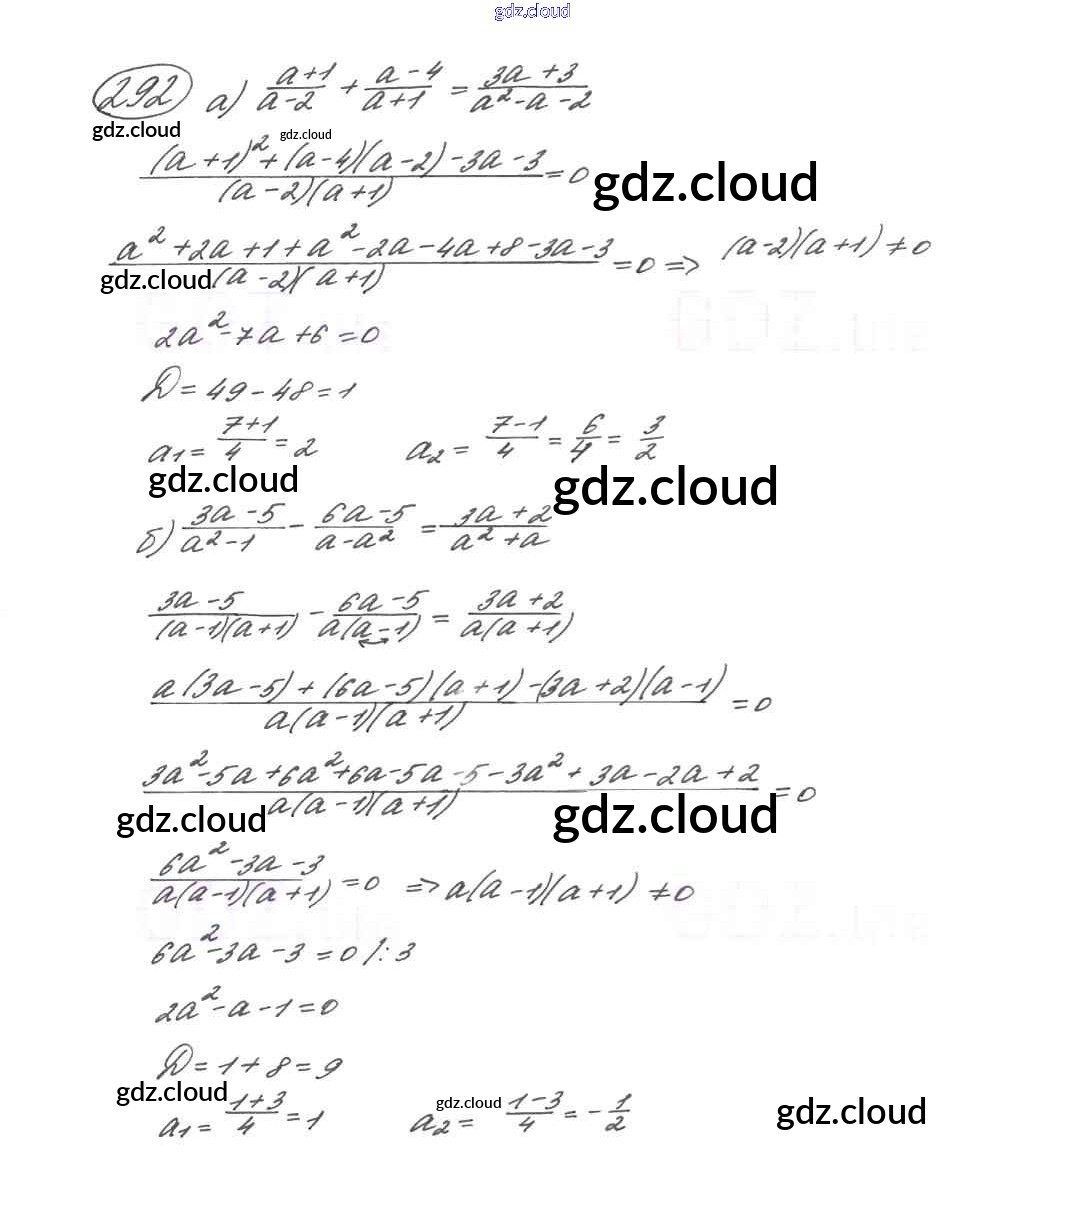 gdz.cloud
292 а) (a+1)/(a-2) + (a-4)/(a+1) = (3a+3)/(a²-a-2)
gdz.cloud gdz.cloud
((a+1)²+(a-4)(a-2)-3a-3)/((a-2)(a+1)) = 0 gdz.cloud
(a²+2a+1+a²-2a-4a+8-3a-3)/((a-2)(a+1)) = 0 => (a-2)(a+1) ≠ 0
gdz.cloud
2a²-7a+6=0
D=49-48=1
a₁ = (7+1)/4 = 2 a₂ = (7-1)/4 = 6/4 = 3/2
gdz.cloud gdz.cloud
б) (3a-5)/(a²-1) - (6a-5)/(a-a²) = (3a+2)/(a²+a)
(3a-5)/((a-1)(a+1)) - (6a-5)/(a(a-1)) = (3a+2)/(a(a+1))
(a(3a-5)+(6a-5)(a+1)-(3a+2)(a-1))/(a(a-1)(a+1)) = 0
(3a²-5a+6a²+6a-5a-5-3a²+3a-2a+2)/(a(a-1)(a+1)) = 0
gdz.cloud gdz.cloud
(6a²-3a-3)/(a(a-1)(a+1)) = 0 => a(a-1)(a+1) ≠ 0
6a²-3a-3=0 /:3
2a²-a-1=0
D=1+8=9
gdz.cloud gdz.cloud gdz.cloud
a₁ = (1+3)/4 = 1 a₂ = (1-3)/4 = -1/2